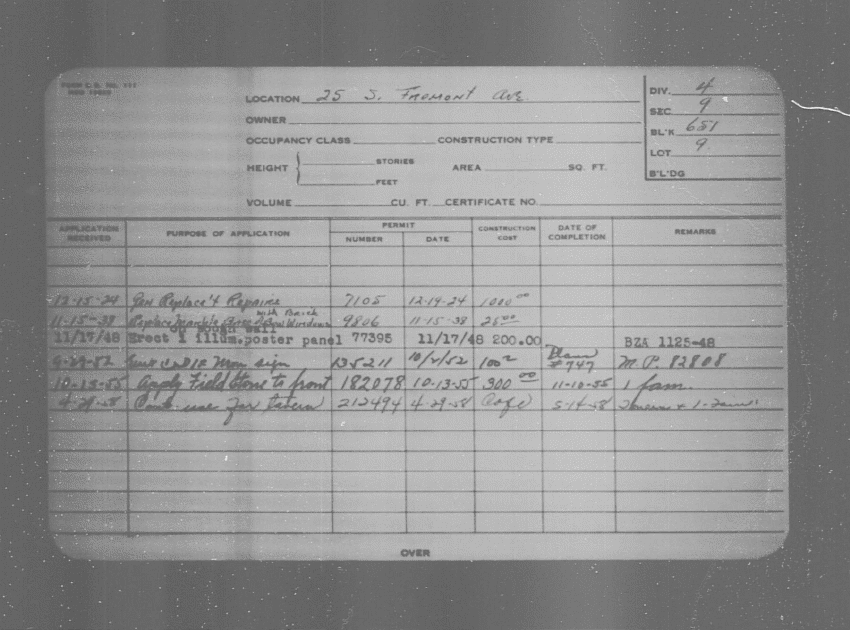 FORM C.B. No. 111
LOCATION 25 S. FREMONT AVE.
DIV. 4
OWNER
SEC 9
OCCUPANCY CLASS CONSTRUCTION TYPE
BL'K 651
LOT 9
HEIGHT STORIES AREA SQ. FT.
FEET
B'L'DG
VOLUME CU. FT. CERTIFICATE NO.
APPLICATION RECEIVED PURPOSE OF APPLICATION PERMIT NUMBER DATE CONSTRUCTION COST DATE OF COMPLETION REMARKS
12-15-24 Gen Replace't & Repairs 7105 12-19-24 1000 00
with Brick
11-15-38 Replace Marble Windows 9806 11-15-38 25 00
on South wall
11/17/48 Erect 1 illum.poster panel 77395 11/17/48 200.00 BZA 1125-48
9-29-52 sign 135211 10/2/52 100 #747 M.P. 82808
10-13-55 Apply Field Stone to front 182078 10-13-55 300 00 11-10-55 1 fam.
4-29-58 Cont. use for tavern 212494 4-29-58 5-14-58
OVER